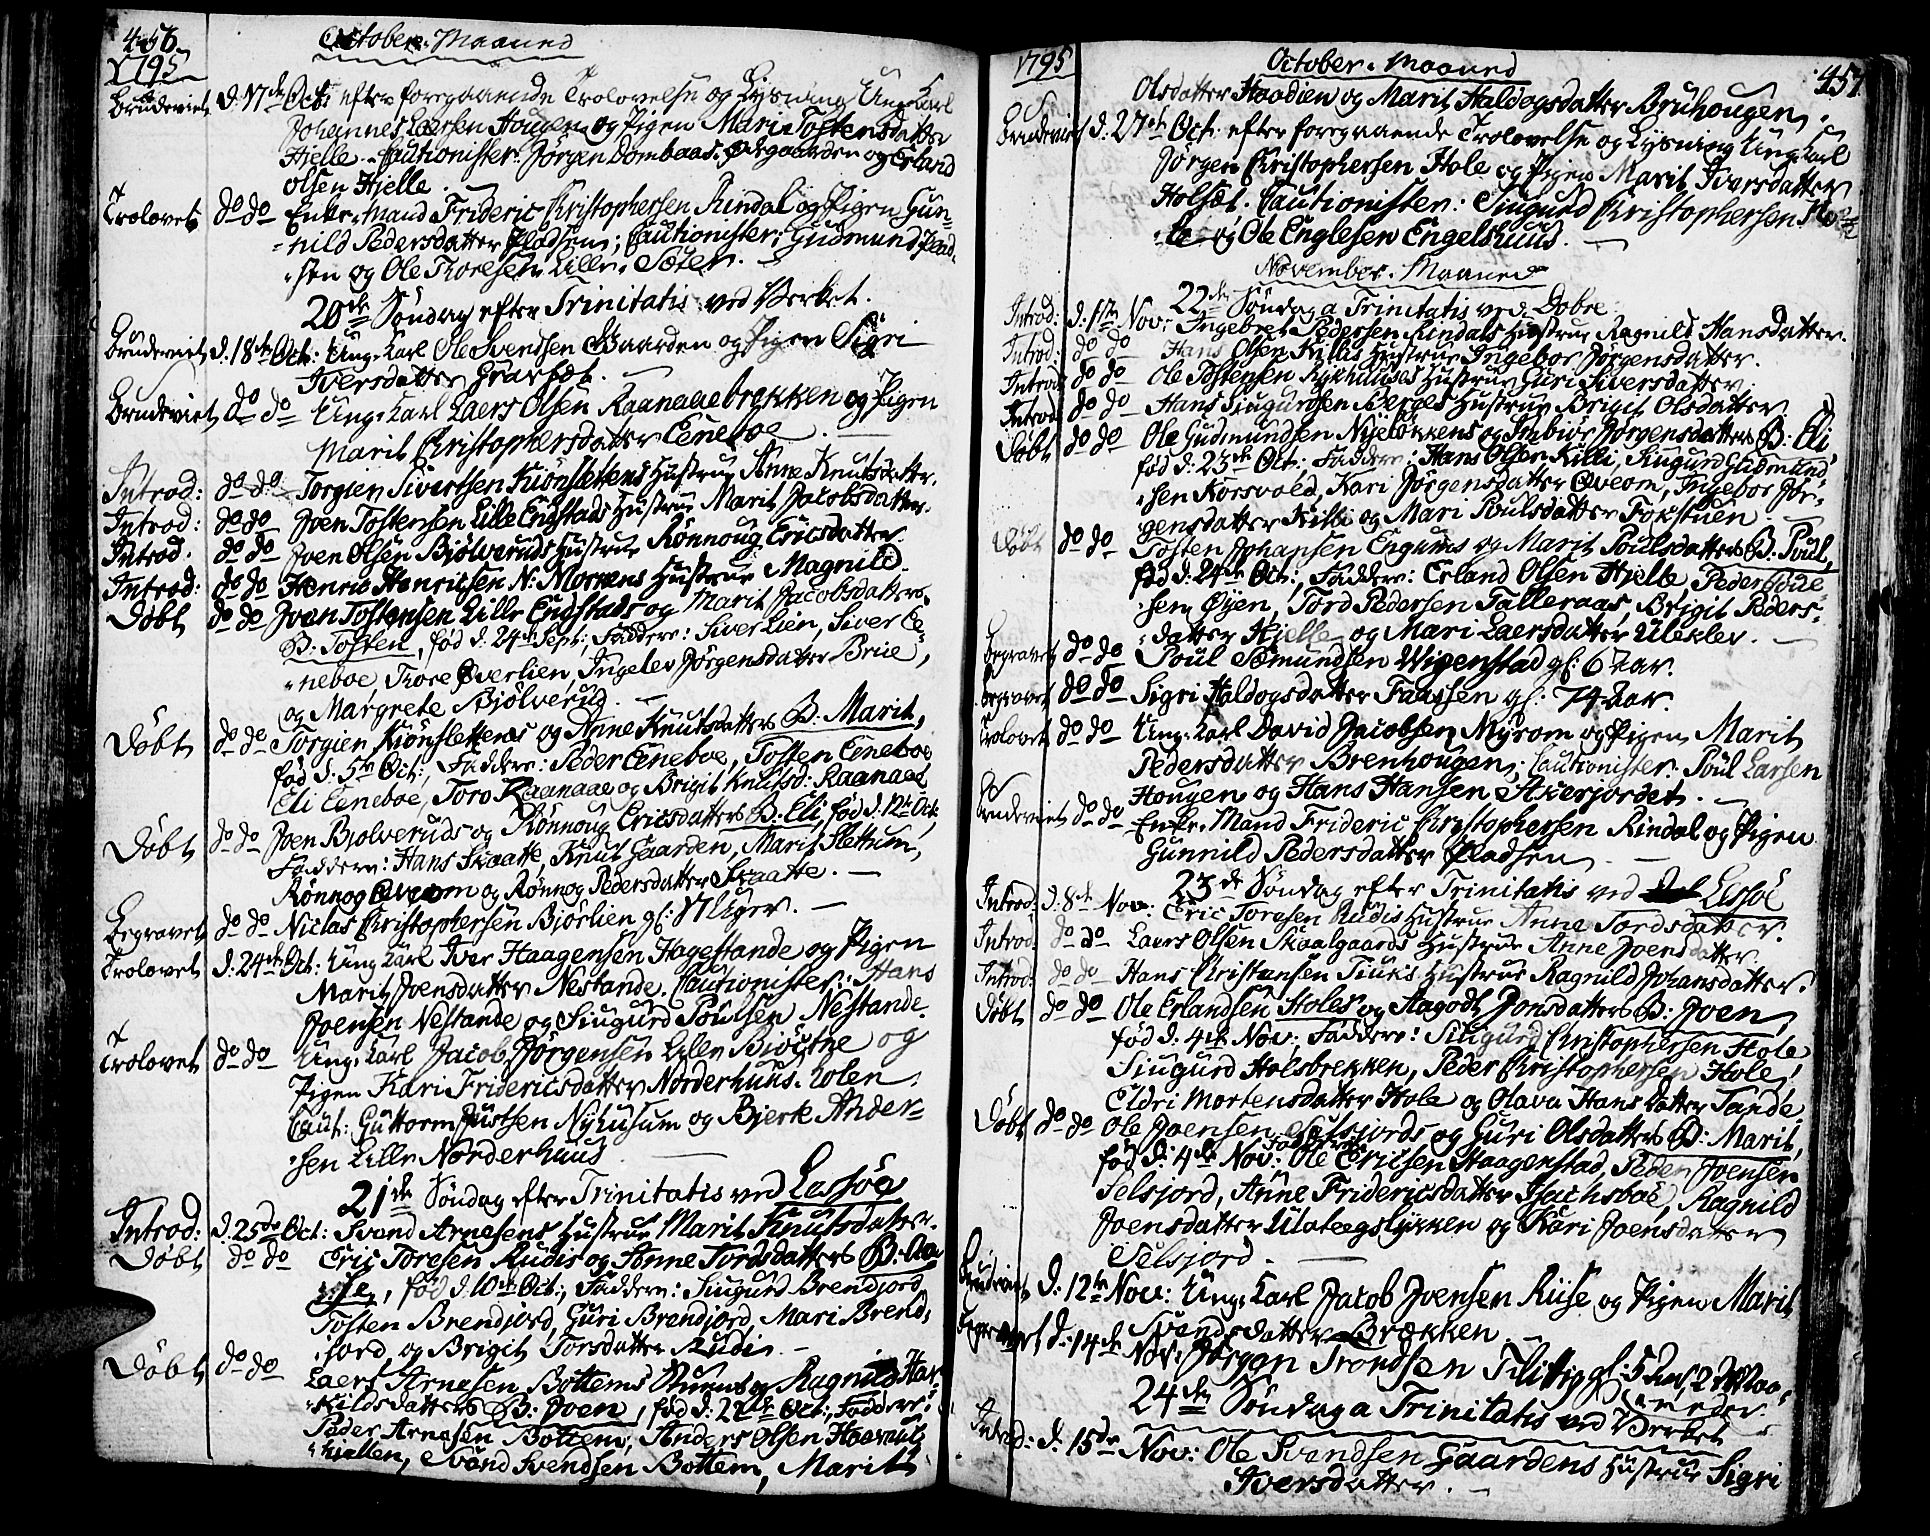 456
1795
October-Maaned
Brudeviet d: 17de Oct: efter foregaaende Trolovelse og Lysning Ung-Karl
Johannes Laersen Hougen og Pigen Mari Tostensdatter
Hjelle. Cautionister: Jørgen Dombaas Ødegaarden og Erland
Olsen Hjelle.
Trolovet do do Enke-Mand Frideric Christophersen Rindal og Pigen Gun-
-nild Pedersdatter Pladsen; Cautionister: Gudmund
-sen og Ole Thoresen Lille-Sæter.
20de Søndag efter Trinitatis ved Verket.
Brudeviet d. 18de Oct: Ung-Karl Ole Svendsen Gaarden og Pigen Sigri
Iversdatter
Brudeviet do do Ung-Karl Laers Olsen Raanaaebrekken og Pigen
Marit Christophersdatter Eeneboe.
Introd: do do Torgien Sivertsen Kiønslettens Hustrue Anne Knutsdatter.
Introd: do do Joen Tostensen Lille Endstads Hustrue Marit Jacobsdatter.
Introd. do do Joen Olsen Bjølveruds Hustrue Rønnoug Ericsdatter.
Introd: do do Henric Henricsen N: Morkens Hustrue Magnild.
Døbt do do Joen Tostensen Lille Endstads og Marit Jacobsdatters
B: Tosten, fød d: 24de Sept; Faddere: Siver Lien, Siver Ee-
-neboe Thore Øverlien, Ingelev Jørgensdatter Brue,
og Margrete Bjølverud.
Døbt do do Torgien Kiønslettenes og Anne Knutsdatters B: Marit,
fød d. 5te Oct:, Faddere: Peder Eeneboe, Tosten Eeneboe
Eli Eeneboe, Toro Raanaae og Brigit Knutsd: Raanaae
Døbt do do Joen Bjølveruds og Rønnoug Ericsdatters B: Eli, fød d. 12te Oct,
Faddere: Hans Skaatte, Knut Gaarden, Marit Slettum,
Rønnog Øveom og Rønnog Pedersdatter Skaatte.
Begravet do do Niclas Christophersen Bjørlien gl: 17 Uger.
Trolovet d: 24de Oct: Ung Karl Iver Haagensen Hagestande og Pigen
Marit Joensdatter Nestande. Cautionister: Hans
Joensen Nestande og Siugurd Poulsen Nestande.
Trolovet do do Ung-Karl Jacob Jørgensen Lille Biøcthe og
Pigen Kari Fridericsdatter Norderhuus-Kolen.
Caut: Guttorm Justsen Nyhusum og Bjerke Ander-
-sen Lille Norderhuus
21de Søndag efter Trinitatis ved Lessøe
Introd: d: 25de Oct: Svend Arnesens Hustrue Marit Knutsdatter.
Døbt do do Eric Toresen Rudis og Anne Tordsdatters B: Aa-
-se, fød d. 10de Oct:, Faddere: Siugurd Brendjord
Tosten Brendjord, Guri Brendjord, Mari Brend-
-jord og Brigit Torsdatter Rudi.
Døbt do do Laers Arnesen Bottems og Ragnild Har-
-kildsdatters B: Joen, fød d: 22de Oct:, Faddere:
Peder Arnesen Bottem, Anders Olsen
-hiellen, Svend Svendsen Bottem, Marit
1795
October-Maaned
457
Olsdatter Haadien og Marit Haldogsdatter Bruhougen.
Brudeviet d. 27de Oct: efter foregaaende Trolovelse og Lysning Ung Karl
Jørgen Christophersen Hole og Pigen Marit Iversdatter
Holsæt. Cautionister: Siugurd Christophersen
og Ole Englesen Engelshuus.
November-Maaned
22de Søndag a Trinitatis ved Dovre
Introd: d: 1te Nov: Ingebret Pedersen Rindals Hustrue Ragnild Hansdatter.
Introd: do do Hans Olsen Killis Hustrue Ingebor Jørgensdatter.
Introd: do do Ole Tostensen Hustrue Guri Siversdatter.
Introd do do Hans Siugurdsen Berges Hustrue Brigit Olsdatter
Døbt do do Ole Gudmundsen Nyeløkkens og Imbiør Jørgensdatters B: Eli,
fød d: 23de Oct: Faddere: Hans Olsen Killi, Siugurd Gudmund-
-sen Korsvold, Kari Jørgensdatter Øveom, Ingebor Jør-
gensdatter Killi og Mari Poulsdatter Fokstuen.
Døbt do do Tosten Johansen Engums og Marit Poulsdatters B: Poul,
fød d: 24de Oct:, Faddere: Erland Olsen Hjelle, Peder
-sen Øyen, Tord Pedersen Talleraas, Brigit Peders-
-datter Hjelle og Mari Laersdatter Uleklev.
Begravet do do Poul Sæmundsen Wigenstad gl: 67 aar.
Begravet do do Sigri Haldogsdatter Faassen gl: 74 aar.
Trolovet do do Ung-Karl David Jacobsen Myrom og Pigen Marit
Pedersdatter Brenhougen; Cautionister: Poul Larsen
Hougen og Hans Hansen Akerjordet.
Brudeviet do do Enke-Mand Frideric Christophersen Rindal og Pigen
Gunnild Pedersdatter Pladsen
23de Søndag efter Trinitatis ved Lessøe
Introd: d. 8de Nov: Eric Toresen Rudis Hustrue Anne Tordsdatter.
Introd: do do Laers Olsen Skaalgaards Hustrue Anne Joensdatter.
Introd: do do Hans Christensen Tiuk's Hustrue Ragnild Johansdatter.
Døbt do do Ole Erlandsen Holes og Aagodt Jonsdatters B: Joen,
fød d. 4de Nov: Faddere: Siugurd Christophersen Hole
Siugurd Holsbrekken, Peder Christophersen Hole,
Eldri Mortensdatter Hole og Olava Hans Datter Tande
Døbt do do Ole Joensen Selsjords og Guri Olsdatters B: Marit,
fød d: 4de Nov: Faddere Ole Ericsen Haagenstad, Peder Joensen
Selsjord, Anne Fridericsdatter Isachsboe, Ragnild
Joensdatter og Kari Joensdatter
Selsjord.
Brudeviet d. 12te Nov: Ung-Karl Jacob Joensen Riise og Pigen Marit
Svendsdatter Brækken.
Begravet d. 14de Nov: Jørgen Trondsen Flittig gl: 5 Aar, 2 Maa-
neder.
24de Søndag a Trinitatis ved Verket
Introd: d. 15de Nov: Ole Svendsen Gaardens Hustrue Sigri
Iversdatter.